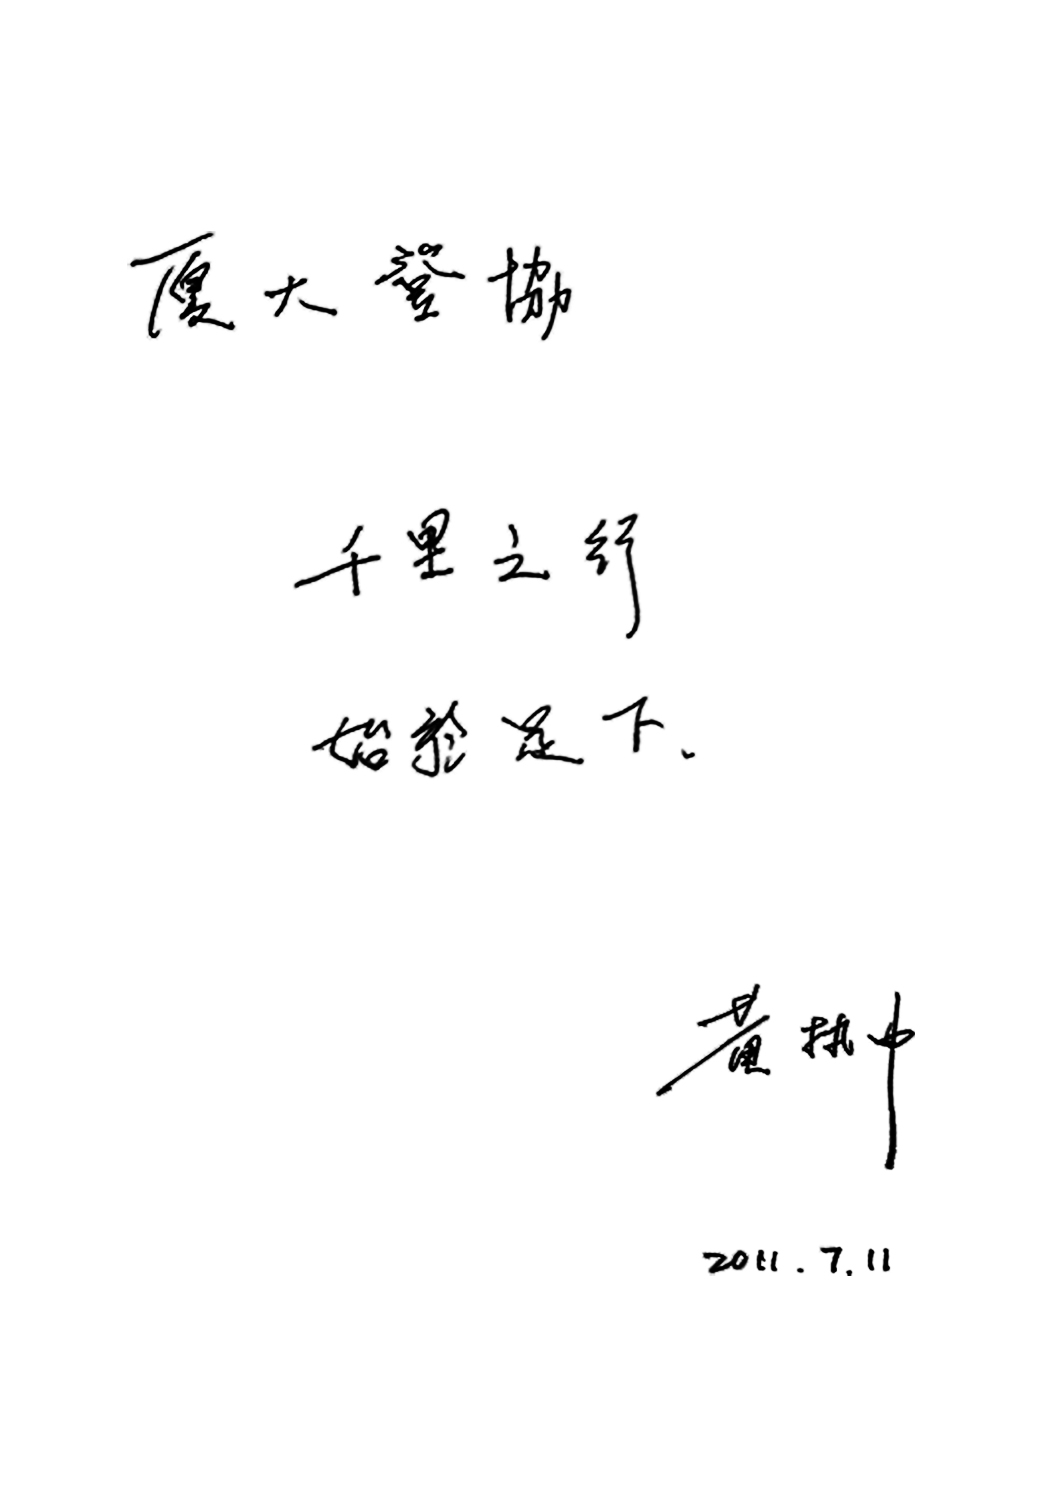 厦大登協
千里之行
始於足下.
黄执中
2011.7.11